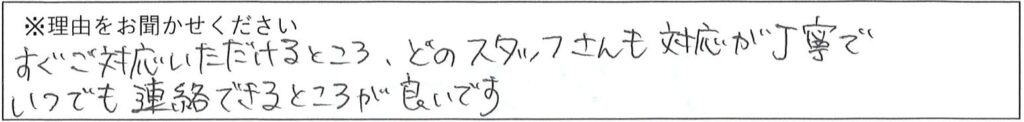 ※理由をお聞かせください
すぐご対応いただけるところ、どのスタッフさんも対応が丁寧で
いつでも連絡できるところが良いです